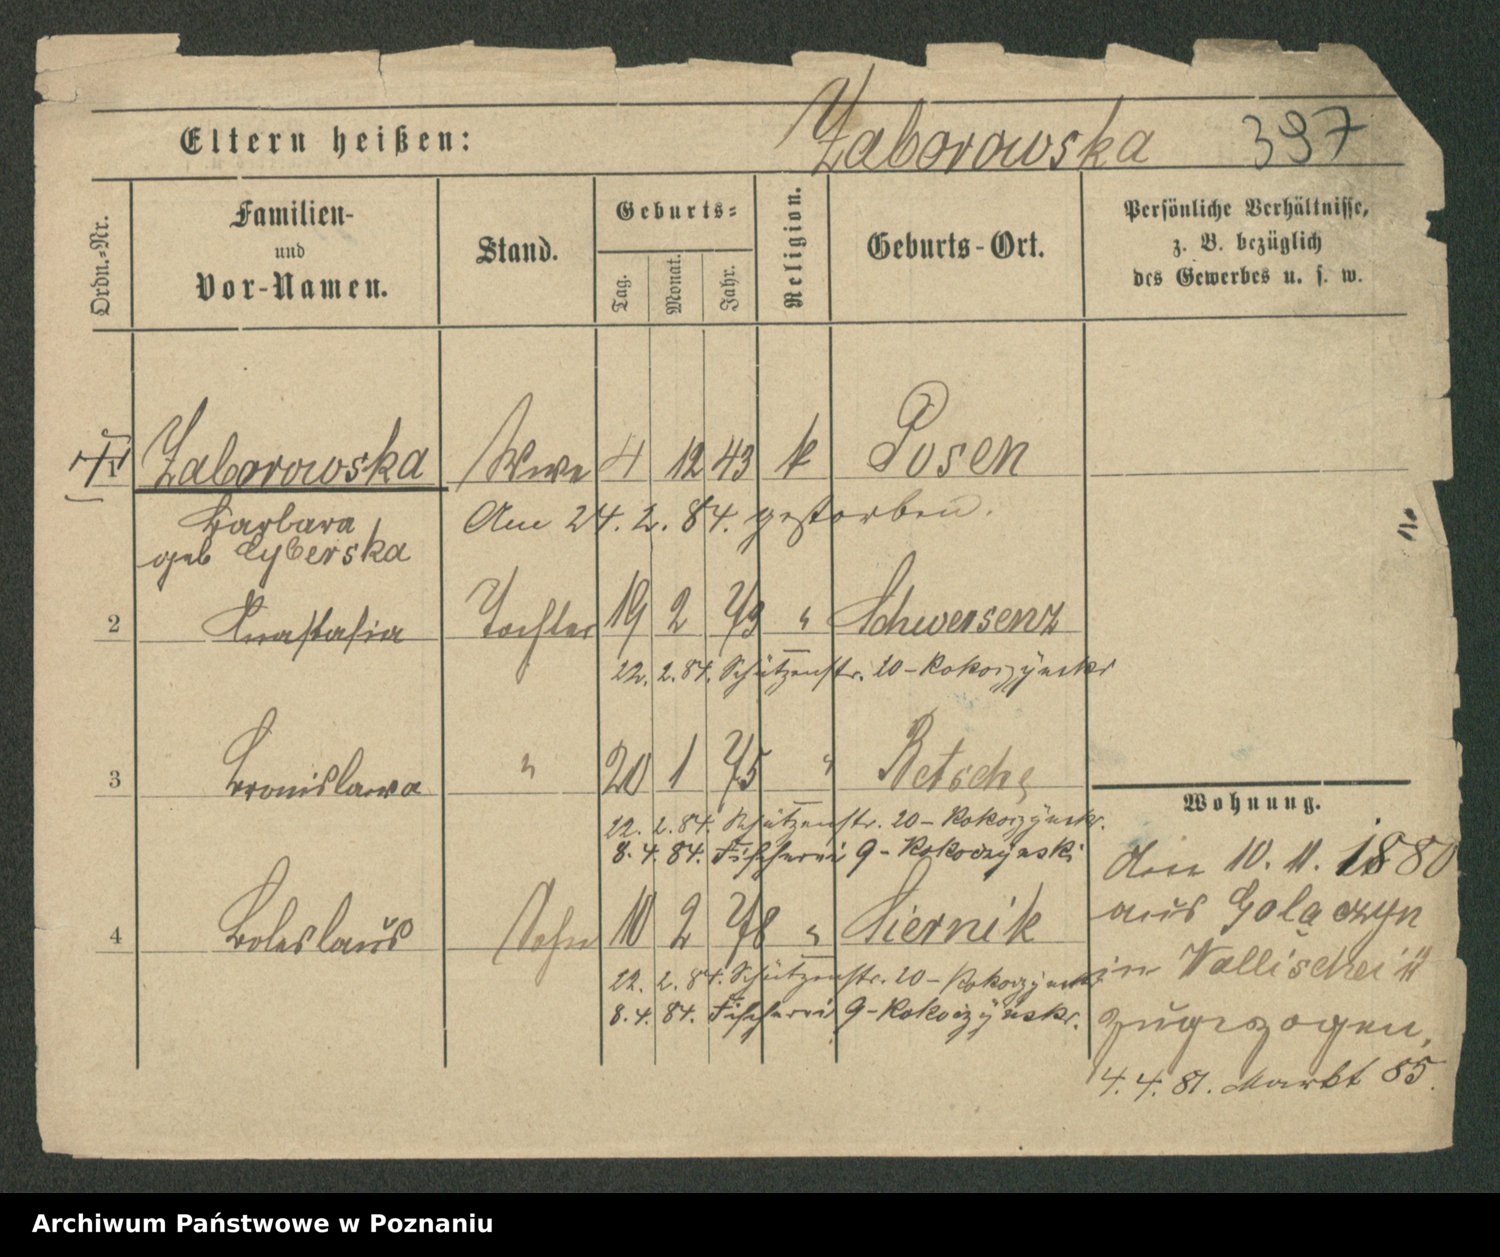 Eltern heißen: Zaborowska 397
Ordn.-Nr.
Familien-
und
Vor-Namen.
Stand.
Geburts-
Tag. Monat. Jahr.
Religion.
Geburts-Ort.
Persönliche Verhältnisse,
z. B. bezüglich
des Gewerbes u. s. w.
1 Zaborowska Wwe 4 12 43 k Posen
Barbara Am 24. 2. 84. gestorben.
geb Cyberska
2 Anastasia Tochter 19 2 73 " Schwersenz
22. 2. 84. Schützenstr. 20 - Kokoszynski
3 Bronislawa " 20 1 75 " Retsche
22. 2. 84. Schützenstr. 20 - Kokoszynski.
8. 4. 84. Fischerei 9 - Kokoszynski
4 Boleslaus Sohn 10 2 78 " Siernik
22. 2. 84. Schützenstr. 20 - Kokoszynski
8. 4. 84. Fischerei 9 - Kokoszynski.
Wohnung.
den 10. 11. 1880
aus Golaczyn
in Wallischei
zugezogen,
4. 4. 81. Markt 85.
Archiwum Państwowe w Poznaniu